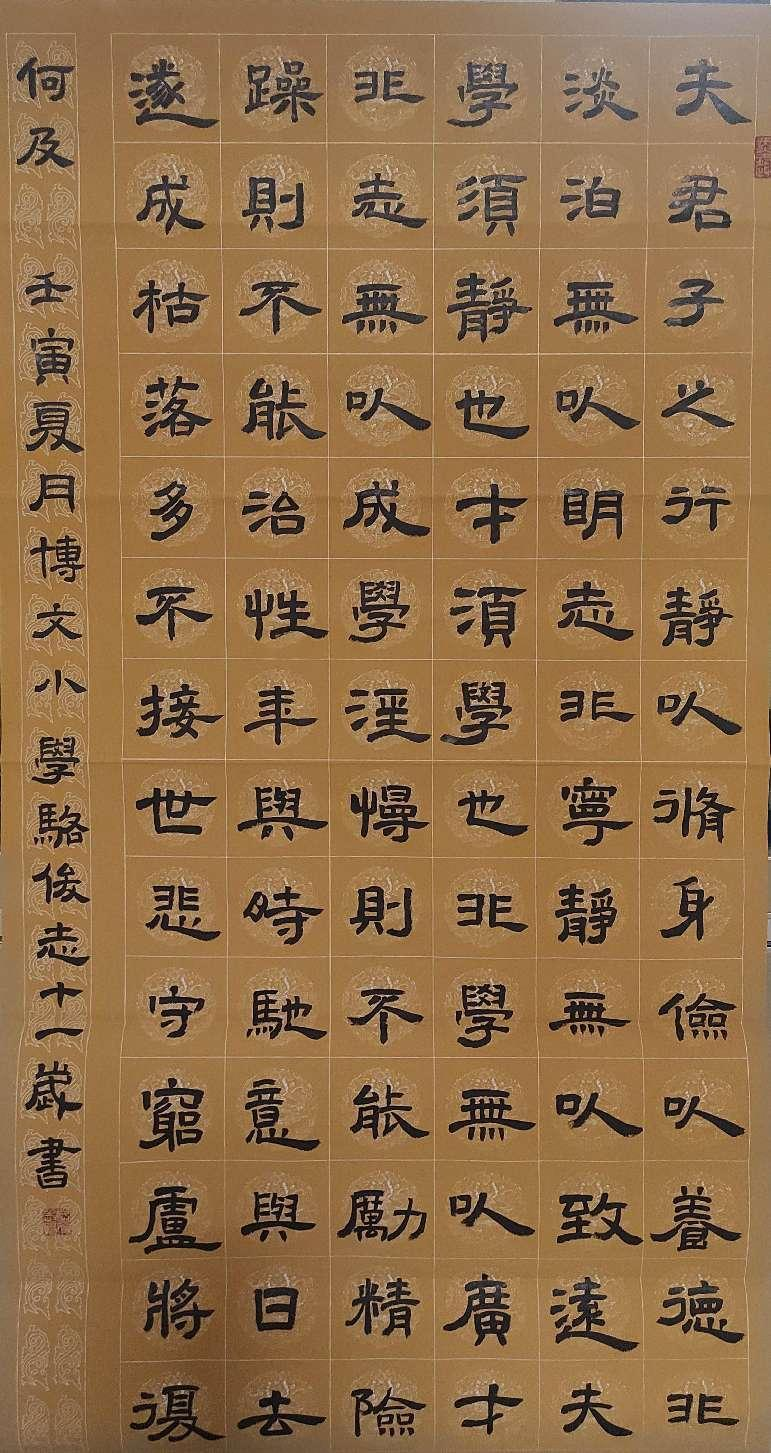 夫君子之行靜以脩身儉以養德非
淡泊無以明志非寧靜無以致遠夫
學須靜也才須學也非學無以廣才
非志無以成學淫慢則不能勵精險
躁則不能治性年與時馳意與日去
遂成枯落多不接世悲守窮廬將復
何及 壬寅夏月博文小學駱俊志十一歲書